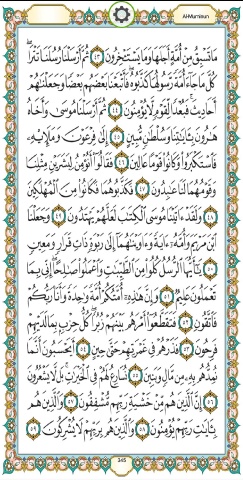 Al-Mu'minun
مَا تَسْبِقُ مِنْ أُمَّةٍ أَجَلَهَا وَمَا يَسْتَـْٔخِرُونَ ٤٣ ثُمَّ أَرْسَلْنَا رُسُلَنَا تَتْرَا ۖ
كُلَّ مَا جَآءَ أُمَّةً رَّسُولُهَا كَذَّبُوهُ ۚ فَأَتْبَعْنَا بَعْضَهُم بَعْضًا وَجَعَلْنَـٰهُمْ
أَحَادِيثَ ۚ فَبُعْدًا لِّقَوْمٍ لَّا يُؤْمِنُونَ ٤٤ ثُمَّ أَرْسَلْنَا مُوسَىٰ وَأَخَاهُ
هَـٰرُونَ بِـَٔايَـٰتِنَا وَسُلْطَـٰنٍ مُّبِينٍ ٤٥ إِلَىٰ فِرْعَوْنَ وَمَلَإِي۟هِۦ
فَٱسْتَكْبَرُوا۟ وَكَانُوا۟ قَوْمًا عَالِينَ ٤٦ فَقَالُوٓا۟ أَنُؤْمِنُ لِبَشَرَيْنِ مِثْلِنَا
وَقَوْمُهُمَا لَنَا عَـٰبِدُونَ ٤٧ فَكَذَّبُوهُمَا فَكَانُوا۟ مِنَ ٱلْمُهْلَكِينَ
٤٨ وَلَقَدْ ءَاتَيْنَا مُوسَى ٱلْكِتَـٰبَ لَعَلَّهُمْ يَهْتَدُونَ ٤٩ وَجَعَلْنَا
ٱبْنَ مَرْيَمَ وَأُمَّهُۥٓ ءَايَةً وَءَاوَيْنَـٰهُمَآ إِلَىٰ رَبْوَةٍ ذَاتِ قَرَارٍ وَمَعِينٍ
٥٠ يَـٰٓأَيُّهَا ٱلرُّسُلُ كُلُوا۟ مِنَ ٱلطَّيِّبَـٰتِ وَٱعْمَلُوا۟ صَـٰلِحًا ۖ إِنِّى بِمَا
تَعْمَلُونَ عَلِيمٌ ٥١ وَإِنَّ هَـٰذِهِۦٓ أُمَّتُكُمْ أُمَّةً وَٰحِدَةً وَأَنَا۠ رَبُّكُمْ
فَٱتَّقُونِ ٥٢ فَتَقَطَّعُوٓا۟ أَمْرَهُم بَيْنَهُمْ زُبُرًا ۖ كُلُّ حِزْبٍۭ بِمَا لَدَيْهِمْ
فَرِحُونَ ٥٣ فَذَرْهُمْ فِى غَمْرَتِهِمْ حَتَّىٰ حِينٍ ٥٤ أَيَحْسَبُونَ أَنَّمَا
نُمِدُّهُم بِهِۦ مِن مَّالٍ وَبَنِينَ ٥٥ نُسَارِعُ لَهُمْ فِى ٱلْخَيْرَٰتِ ۚ بَل لَّا يَشْعُرُونَ
٥٦ إِنَّ ٱلَّذِينَ هُم مِّنْ خَشْيَةِ رَبِّهِم مُّشْفِقُونَ ٥٧ وَٱلَّذِينَ هُم
بِـَٔايَـٰتِ رَبِّهِمْ يُؤْمِنُونَ ٥٨ وَٱلَّذِينَ هُم بِرَبِّهِمْ لَا يُشْرِكُونَ ٥٩
345